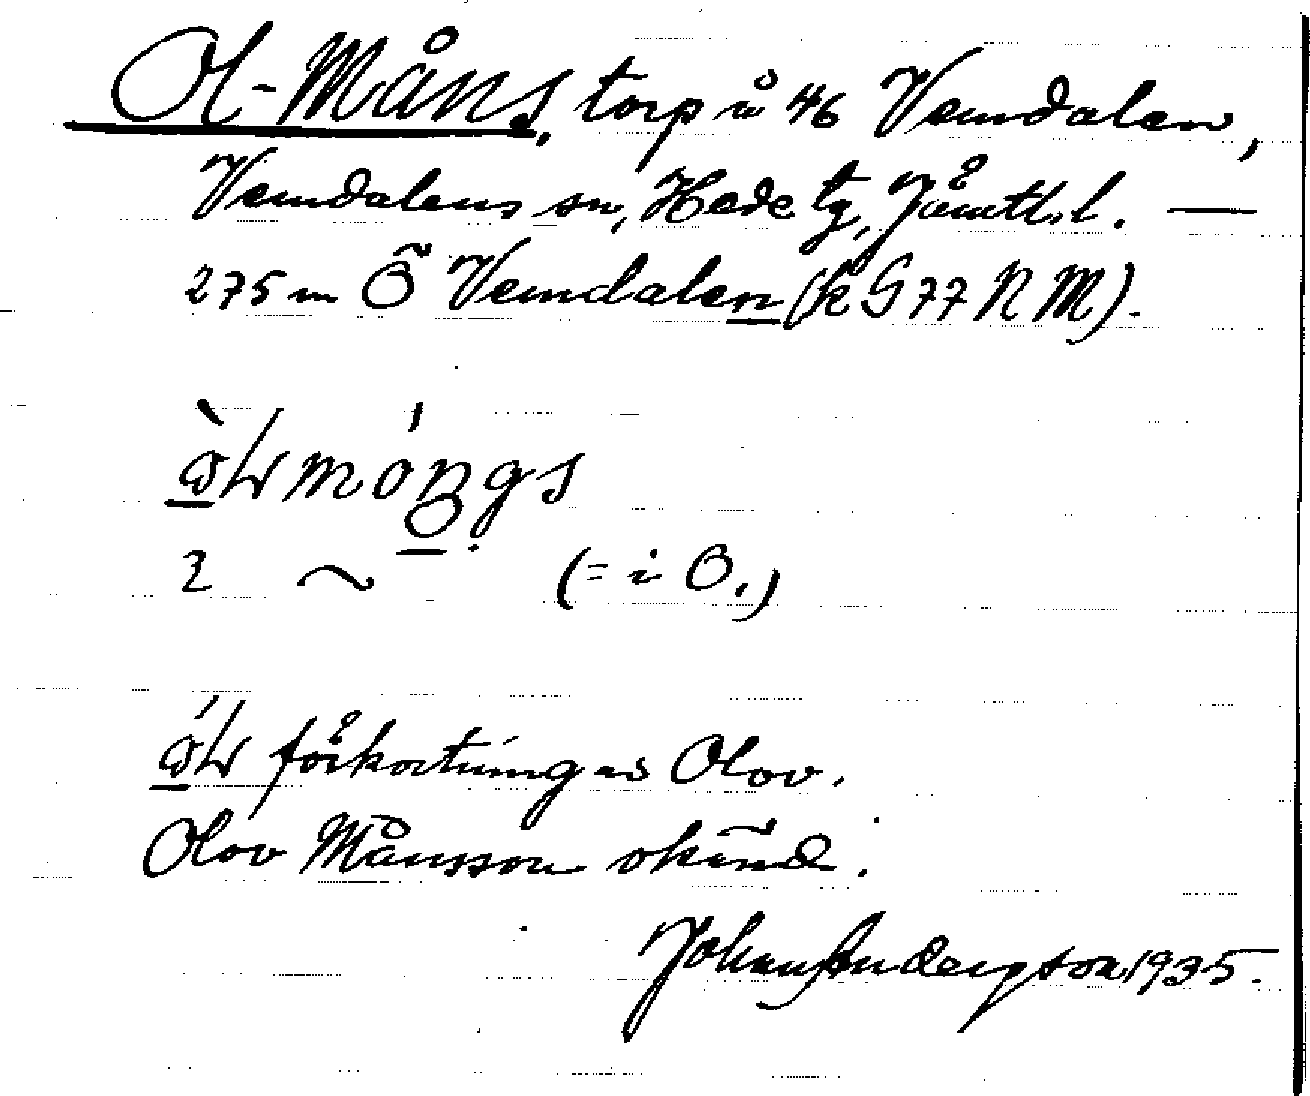 Ol-Måns, torp å 46 Vemdalen,
Vemdalens sn, Hede tg, Jämtl. l. —
275 m Ö Vemdalen (k G77 N M).
2 ~ (= i O.)
förkortning av Olov.
Olov Månsson okänd.
Johan Anderzson 1935.